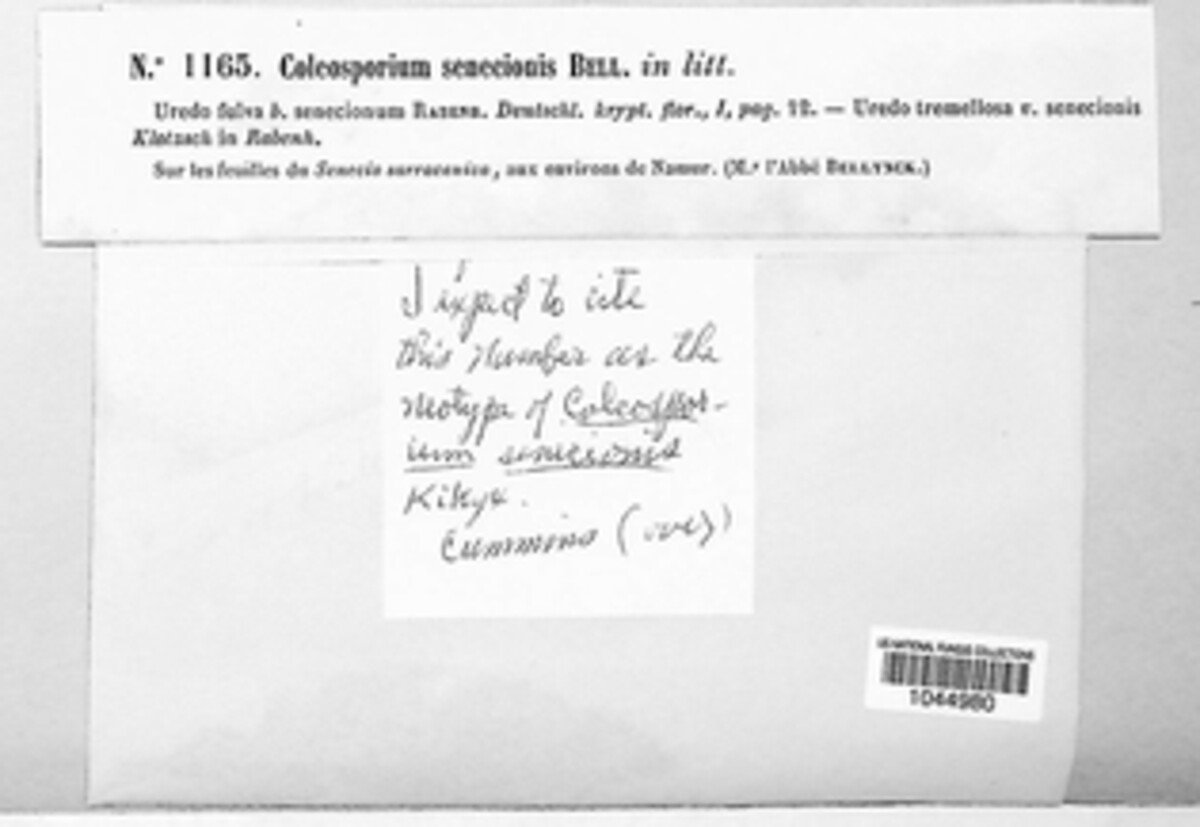 N.º 1165. Coleosporium senecionis BELL. in litt.
Uredo fulva b. senecionum RABENH. Deutschl. krypt. flor., I, pag. 12. — Uredo tremellosa v. senecionis
Klotzsch in Rabenh.
Sur les feuilles du Senecio sarracenica, aux environs de Namur. (M.r l'Abbé BELLYNCK.)
I expect to cite
this number as the
neotype of Coleospor-
ium senecionis
Kickx.
Cummins (over)
US NATIONAL FUNGUS COLLECTIONS
1044980